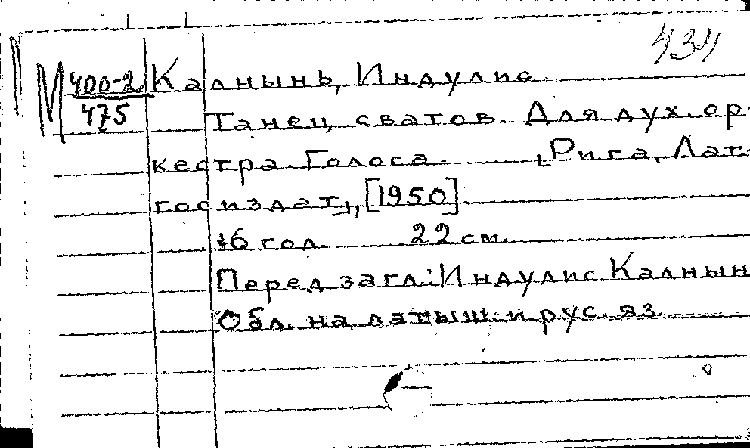 434
М 400-2
475
Калнынь, Индулис
Танец сватов. Для дух. ор
кестра. Голоса. , Рига, Лат
госиздат, [1950].
16 гол. 22 см.
Перед загл.: Индулис Калнын
Обл. на латыш. и рус. яз.